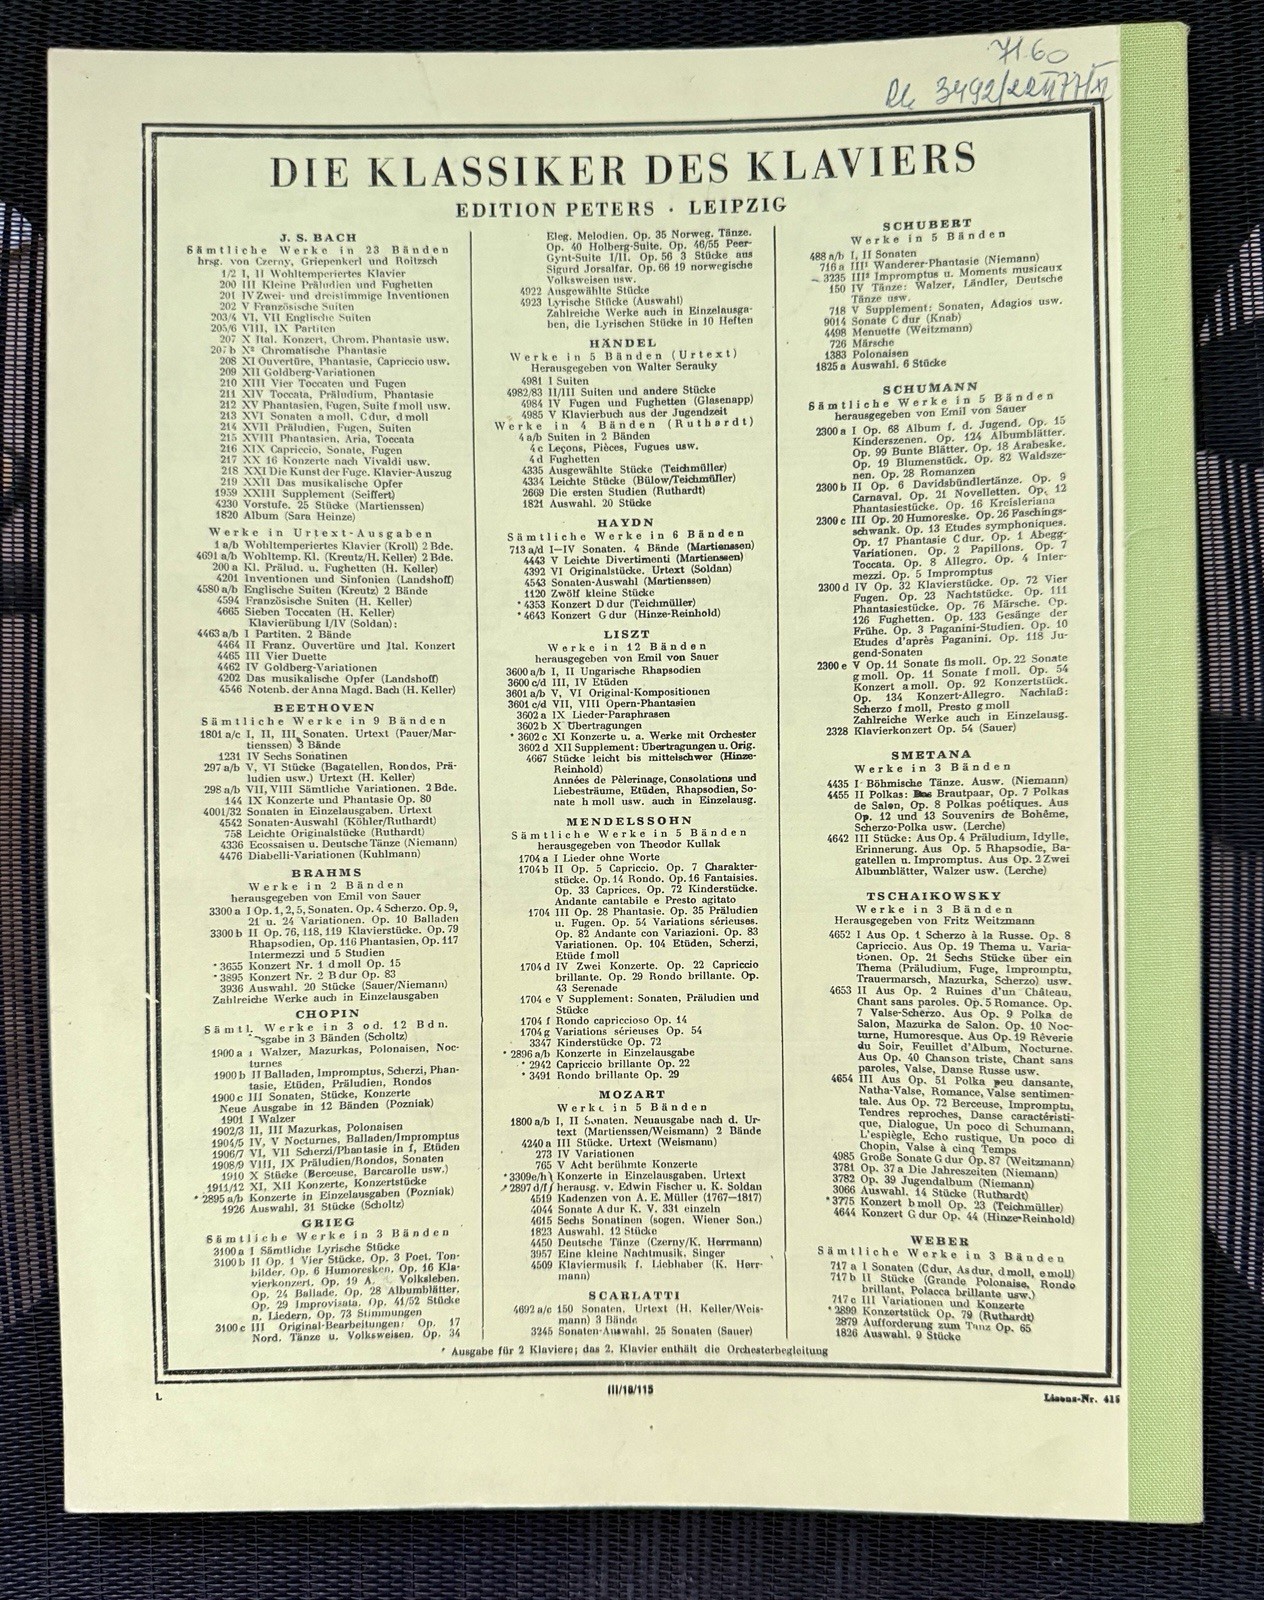 71.60
3492/22II77/XI
DIE KLASSIKER DES KLAVIERS
EDITION PETERS · LEIPZIG
J. S. BACH
Sämtliche Werke in 23 Bänden
hrsg. von Czerny, Griepenkerl und Roitzsch
1/2 I, II Wohltemperiertes Klavier
200 III Kleine Präludien und Fughetten
201 IV Zwei- und dreistimmige Inventionen
202 V Französische Suiten
203/4 VI, VII Englische Suiten
205/6 VIII, IX Partiten
207 X Ital. Konzert, Chrom. Phantasie usw.
207 b Xª Chromatische Phantasie
208 XI Ouvertüre, Phantasie, Capriccio usw.
209 XII Goldberg-Variationen
210 XIII Vier Toccaten und Fugen
211 XIV Toccata, Präludium, Phantasie
212 XV Phantasien, Fugen, Suite f moll usw.
213 XVI Sonaten a moll, C dur, d moll
214 XVII Präludien, Fugen, Suiten
215 XVIII Phantasien, Aria, Toccata
216 XIX Capriccio, Sonate, Fugen
217 XX 16 Konzerte nach Vivaldi usw.
218 XXI Die Kunst der Fuge. Klavier-Auszug
219 XXII Das musikalische Opfer
1959 XXIII Supplement (Seiffert)
4230 Vorstufe. 25 Stücke (Martienssen)
1820 Album (Sara Heinze)
Werke in Urtext-Ausgaben
1 a/b Wohltemperiertes Klavier (Kroll) 2 Bde.
4691 a/b Wohltemp. Kl. (Kreutz/H. Keller) 2 Bde.
200 a Kl. Prälud. u. Fughetten (H. Keller)
4201 Inventionen und Sinfonien (Landshoff)
4580 a/b Englische Suiten (Kreutz) 2 Bände
4594 Französische Suiten (H. Keller)
4665 Sieben Toccaten (H. Keller)
Klavierübung I/IV (Soldan):
4463 a/b I Partiten. 2 Bände
4464 II Franz. Ouvertüre und Ital. Konzert
4465 III Vier Duette
4462 IV Goldberg-Variationen
4202 Das musikalische Opfer (Landshoff)
4546 Notenb. der Anna Magd. Bach (H. Keller)
BEETHOVEN
Sämtliche Werke in 9 Bänden
1801 a/c I, II, III Sonaten. Urtext (Pauer/Mar-
tienssen) 3 Bände
1231 IV Sechs Sonatinen
297 a/b V, VI Stücke (Bagatellen, Rondos, Prä-
ludien usw.) Urtext (H. Keller)
298 a/b VII, VIII Sämtliche Variationen. 2 Bde.
144 IX Konzerte und Phantasie Op. 80
4001/32 Sonaten in Einzelausgaben. Urtext
4542 Sonaten-Auswahl (Köhler/Ruthardt)
758 Leichte Originalstücke (Ruthardt)
4336 Ecossaisen u. Deutsche Tänze (Niemann)
4476 Diabelli-Variationen (Kuhlmann)
BRAHMS
Werke in 2 Bänden
herausgegeben von Emil von Sauer
3300 a I Op. 1, 2, 5, Sonaten. Op. 4 Scherzo. Op. 9,
21 u. 24 Variationen. Op. 10 Balladen
3300 b II Op. 76, 118, 119 Klavierstücke. Op. 79
Rhapsodien, Op. 116 Phantasien, Op. 117
Intermezzi und 5 Studien
* 3655 Konzert Nr. 1 d moll Op. 15
* 3895 Konzert Nr. 2 B dur Op. 83
3936 Auswahl. 20 Stücke (Sauer/Niemann)
Zahlreiche Werke auch in Einzelausgaben
CHOPIN
Sämtl. Werke in 3 od. 12 Bdn.
sgabe in 3 Bänden (Scholtz)
1900 a I Walzer, Mazurkas, Polonaisen, Noc-
turnes
1900 b II Balladen, Impromptus, Scherzi, Phan-
tasie, Etüden, Präludien, Rondos
1900 c III Sonaten, Stücke, Konzerte
Neue Ausgabe in 12 Bänden (Pozniak)
1901 I Walzer
1902/3 II, III Mazurkas, Polonaisen
1904/5 IV, V Nocturnes, Balladen/Impromptus
1906/7 VI, VII Scherzi/Phantasie in f, Etüden
1908/9 VIII, IX Präludien/Rondos, Sonaten
1910 X Stücke (Berceuse, Barcarolle usw.)
1911/12 XI, XII Konzerte, Konzertstücke
* 2895 a/b Konzerte in Einzelausgaben (Pozniak)
1926 Auswahl. 31 Stücke (Scholtz)
GRIEG
Sämtliche Werke in 3 Bänden
3100 a I Sämtliche Lyrische Stücke
3100 b II Op. 1 Vier Stücke. Op. 3 Poet. Ton-
bilder. Op. 6 Humoresken. Op. 16 Kla-
vierkonzert. Op. 19 A. Volksleben.
Op. 24 Ballade. Op. 28 Albumblätter.
Op. 29 Improvisata. Op. 41/52 Stücke
n. Liedern. Op. 73 Stimmungen
3100 c III Original-Bearbeitungen: Op. 17
Nord. Tänze u. Volksweisen. Op. 34
Eleg. Melodien. Op. 35 Norweg. Tänze.
Op. 40 Holberg-Suite. Op. 46/55 Peer-
Gynt-Suite I/II. Op. 56 3 Stücke aus
Sigurd Jorsalfar. Op. 66 19 norwegische
Volksweisen usw.
4922 Ausgewählte Stücke
4923 Lyrische Stücke (Auswahl)
Zahlreiche Werke auch in Einzelausga-
ben, die Lyrischen Stücke in 10 Heften
HÄNDEL
Werke in 5 Bänden (Urtext)
Herausgegeben von Walter Serauky
4981 I Suiten
4982/83 II/III Suiten und andere Stücke
4984 IV Fugen und Fughetten (Glasenapp)
4985 V Klavierbuch aus der Jugendzeit
Werke in 4 Bänden (Ruthardt)
4 a/b Suiten in 2 Bänden
4 c Leçons, Pièces, Fugues usw.
4 d Fughetten
4335 Ausgewählte Stücke (Teichmüller)
4334 Leichte Stücke (Bülow/Teichmüller)
2669 Die ersten Studien (Ruthardt)
1821 Auswahl. 20 Stücke
HAYDN
Sämtliche Werke in 6 Bänden
713 a/d I–IV Sonaten. 4 Bände (Martienssen)
4443 V Leichte Divertimenti (Martienssen)
4392 VI Originalstücke. Urtext (Soldan)
4543 Sonaten-Auswahl (Martienssen)
1120 Zwölf kleine Stücke
* 4353 Konzert D dur (Teichmüller)
* 4643 Konzert G dur (Hinze-Reinhold)
LISZT
Werke in 12 Bänden
herausgegeben von Emil von Sauer
3600 a/b I, II Ungarische Rhapsodien
3600 c/d III, IV Etüden
3601 a/b V, VI Original-Kompositionen
3601 c/d VII, VIII Opern-Phantasien
3602 a IX Lieder-Paraphrasen
3602 b X Übertragungen
* 3602 c XI Konzerte u. a. Werke mit Orchester
3602 d XII Supplement: Übertragungen u. Orig.
4667 Stücke leicht bis mittelschwer (Hinze-
Reinhold)
Années de Pèlerinage, Consolations und
Liebesträume, Etüden, Rhapsodien, So-
nate h moll usw. auch in Einzelausg.
MENDELSSOHN
Sämtliche Werke in 5 Bänden
herausgegeben von Theodor Kullak
1704 a I Lieder ohne Worte
1704 b II Op. 5 Capriccio. Op. 7 Charakter-
stücke. Op. 14 Rondo. Op. 16 Fantaisies.
Op. 33 Caprices. Op. 72 Kinderstücke.
Andante cantabile e Presto agitato
1704 III Op. 28 Phantasie. Op. 35 Präludien
u. Fugen. Op. 54 Variations sérieuses.
Op. 82 Andante con Variazioni. Op. 83
Variationen. Op. 104 Etüden, Scherzi,
Etüde f moll
1704 d IV Zwei Konzerte. Op. 22 Capriccio
brillante. Op. 29 Rondo brillante. Op.
43 Serenade
1704 e V Supplement: Sonaten, Präludien und
Stücke
1704 f Rondo capriccioso Op. 14
1704 g Variations sérieuses Op. 54
3347 Kinderstücke Op. 72
* 2896 a/b Konzerte in Einzelausgabe
* 2942 Capriccio brillante Op. 22
* 3491 Rondo brillante Op. 29
MOZART
Werke in 5 Bänden
1800 a/b I, II Sonaten. Neuausgabe nach d. Ur-
text (Martienssen/Weismann) 2 Bände
4240 a III Stücke. Urtext (Weismann)
273 IV Variationen
765 V Acht berühmte Konzerte
* 3309 e/h Konzerte in Einzelausgaben. Urtext
* 2897 d/f herausg. v. Edwin Fischer u. K. Soldan
4519 Kadenzen von A. E. Müller (1767–1817)
4044 Sonate A dur K. V. 331 einzeln
4615 Sechs Sonatinen (sogen. Wiener Son.)
1823 Auswahl. 12 Stücke
4450 Deutsche Tänze (Czerny/K. Herrmann)
3957 Eine kleine Nachtmusik. Singer
4509 Klaviermusik f. Liebhaber (K. Herr-
mann)
SCARLATTI
4692 a/c 150 Sonaten. Urtext (H. Keller/Weis-
mann) 3 Bände
3245 Sonaten-Auswahl. 25 Sonaten (Sauer)
SCHUBERT
Werke in 5 Bänden
488 a/b I, II Sonaten
716 a III¹ Wanderer-Phantasie (Niemann)
3235 III² Impromptus u. Moments musicaux
150 IV Tänze: Walzer, Ländler, Deutsche
Tänze usw.
718 V Supplement: Sonaten, Adagios usw.
9014 Sonate C dur (Knab)
4498 Menuette (Weitzmann)
726 Märsche
1383 Polonaisen
1825 a Auswahl. 6 Stücke
SCHUMANN
Sämtliche Werke in 5 Bänden
herausgegeben von Emil von Sauer
2300 a I Op. 68 Album f. d. Jugend. Op. 15
Kinderszenen. Op. 124 Albumblätter.
Op. 99 Bunte Blätter. Op. 18 Arabeske.
Op. 19 Blumenstück. Op. 82 Waldsze-
nen. Op. 28 Romanzen
2300 b II Op. 6 Davidsbündlertänze. Op. 9
Carnaval. Op. 21 Novelletten. Op. 12
Phantasiestücke. Op. 16 Kreisleriana
2300 c III Op. 20 Humoreske. Op. 26 Faschings-
schwank. Op. 13 Etudes symphoniques.
Op. 17 Phantasie C dur. Op. 1 Abegg-
Variationen. Op. 2 Papillons. Op. 7
Toccata. Op. 8 Allegro. Op. 4 Inter-
mezzi. Op. 5 Impromptus
2300 d IV Op. 32 Klavierstücke. Op. 72 Vier
Fugen. Op. 23 Nachtstücke. Op. 111
Phantasiestücke. Op. 76 Märsche. Op.
126 Fughetten. Op. 133 Gesänge der
Frühe. Op. 3 Paganini-Studien. Op. 10
Etudes d'après Paganini. Op. 118 Ju-
gend-Sonaten
2300 e V Op. 11 Sonate fis moll. Op. 22 Sonate
g moll. Op. 11 Sonate f moll. Op. 54
Konzert a moll. Op. 92 Konzertstück.
Op. 134 Konzert-Allegro. Nachlaß:
Scherzo f moll, Presto g moll
Zahlreiche Werke auch in Einzelausg.
2328 Klavierkonzert Op. 54 (Sauer)
SMETANA
Werke in 3 Bänden
4435 I Böhmische Tänze. Ausw. (Niemann)
4455 II Polkas: Das Brautpaar, Op. 7 Polkas
de Salon, Op. 8 Polkas poétiques. Aus
Op. 12 und 13 Souvenirs de Bohême,
Scherzo-Polka usw. (Lerche)
4642 III Stücke: Aus Op. 4 Präludium, Idylle,
Erinnerung. Aus Op. 5 Rhapsodie, Ba-
gatellen u. Impromptus. Aus Op. 2 Zwei
Albumblätter, Walzer usw. (Lerche)
TSCHAIKOWSKY
Werke in 3 Bänden
Herausgegeben von Fritz Weitzmann
4652 I Aus Op. 1 Scherzo à la Russe. Op. 8
Capriccio. Aus Op. 19 Thema u. Varia-
tionen. Op. 21 Sechs Stücke über ein
Thema (Präludium, Fuge, Impromptu,
Trauermarsch, Mazurka, Scherzo) usw.
4653 II Aus Op. 2 Ruines d'un Château,
Chant sans paroles. Op. 5 Romance. Op.
7 Valse-Scherzo. Aus Op. 9 Polka de
Salon, Mazurka de Salon. Op. 10 Noc-
turne, Humoresque. Aus Op. 19 Rêverie
du Soir, Feuillet d'Album, Nocturne.
Aus Op. 40 Chanson triste, Chant sans
paroles, Valse, Danse Russe usw.
4654 III Aus Op. 51 Polka peu dansante,
Natha-Valse, Romance, Valse sentimen-
tale. Aus Op. 72 Berceuse, Impromptu,
Tendres reproches, Danse caractéristi-
que, Dialogue, Un poco di Schumann,
L'espiègle, Echo rustique, Un poco di
Chopin, Valse à cinq Temps
4985 Große Sonate G dur Op. 87 (Weitzmann)
3781 Op. 37 a Die Jahreszeiten (Niemann)
3782 Op. 39 Jugendalbum (Niemann)
3066 Auswahl. 14 Stücke (Ruthardt)
* 3775 Konzert b moll Op. 23 (Teichmüller)
4644 Konzert G dur Op. 44 (Hinze-Reinhold)
WEBER
Sämtliche Werke in 3 Bänden
717 a I Sonaten (C dur, As dur, d moll, e moll)
717 b II Stücke (Grande Polonaise, Rondo
brillant, Polacca brillante usw.)
717 c III Variationen und Konzerte
* 2899 Konzertstück Op. 79 (Ruthardt)
2879 Aufforderung zum Tanz Op. 65
1826 Auswahl. 9 Stücke
* Ausgabe für 2 Klaviere; das 2. Klavier enthält die Orchesterbegleitung
L
III/18/115
Lizenz-Nr. 415